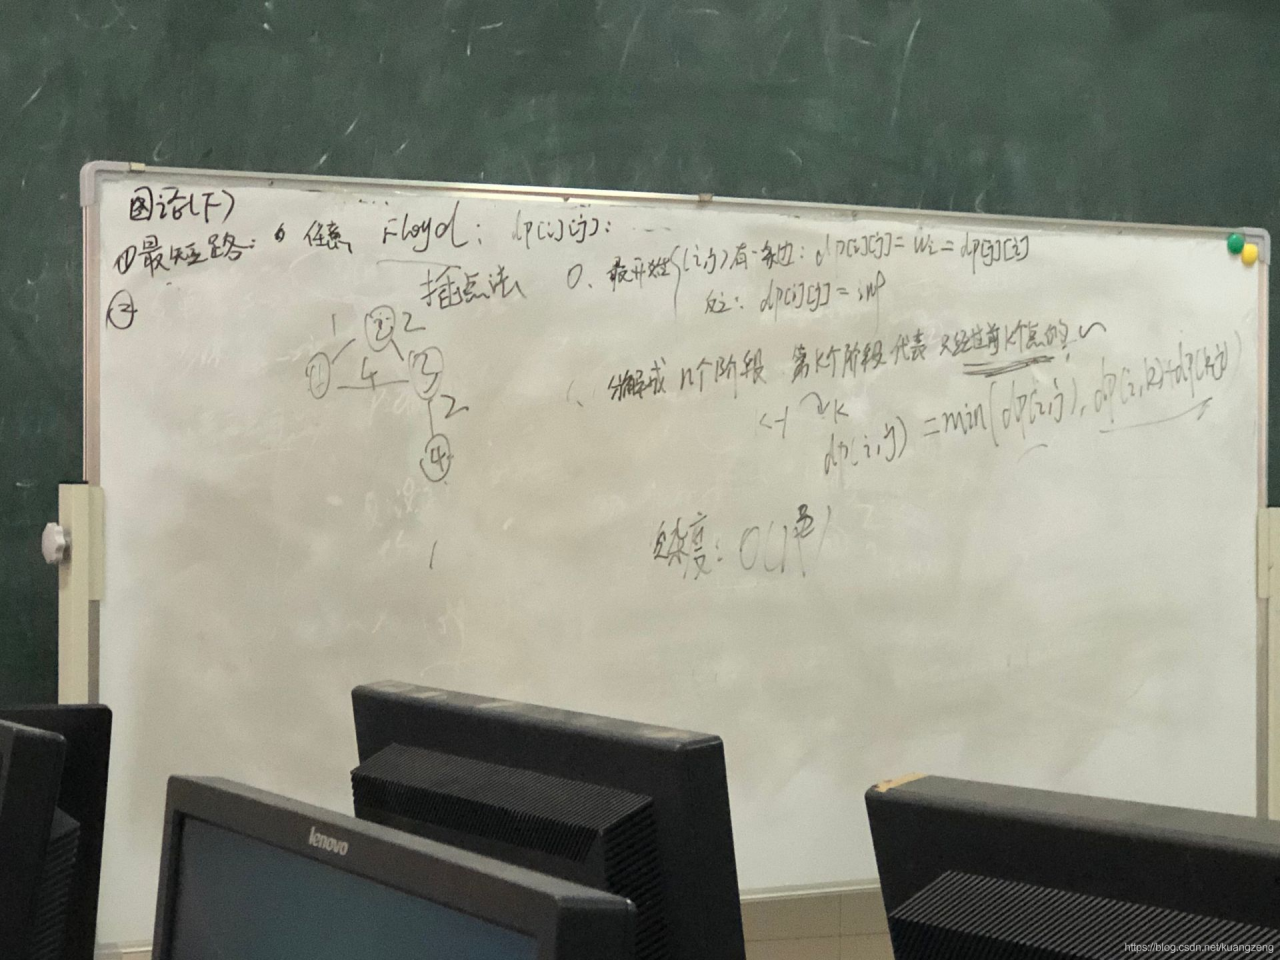 图论(下)
①最短路: 任意 Floyd: dp[i][j]:
插点法
0、最开始 (i,j)有一条边: dp[i][j] = wi = dp[j][i]
反之: dp[i][j] = inf
②
1 ② 2
① 4 ③
2
④
分解成 n个阶段 第k个阶段 代表 只经过前k个点的
k-1 k
dp(i,j) = min(dp(i,j), dp(i,k)+dp(k,j))
复杂度: O(n³)
lenovo
https://blog.csdn.net/kuangzeng